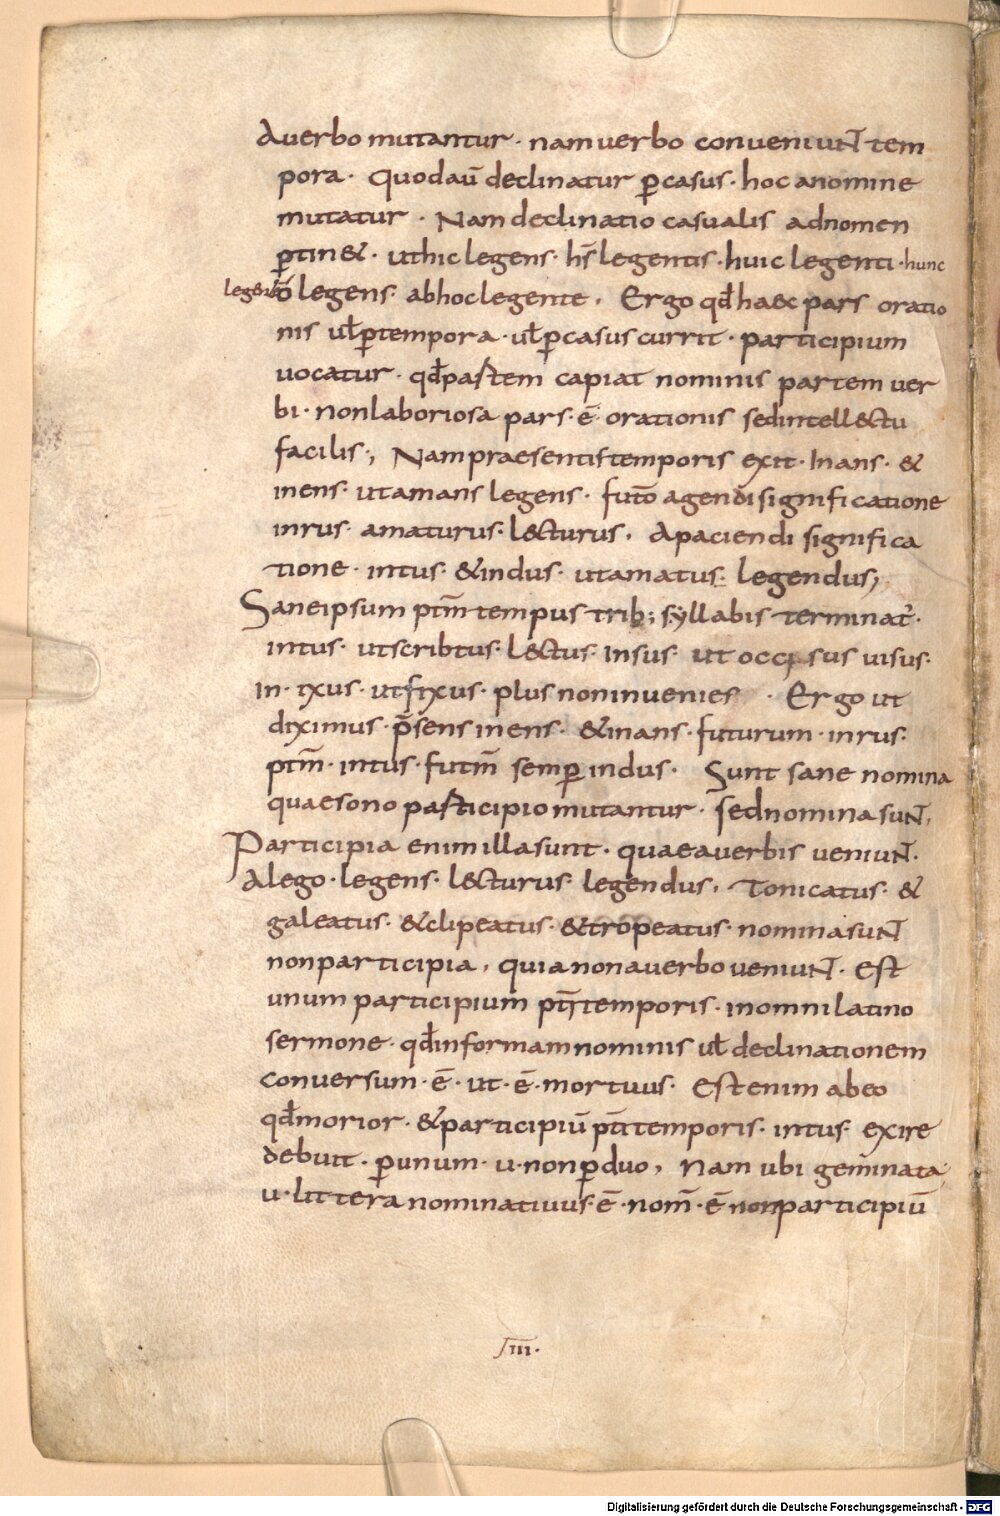 Auerbo mutantur · nam uerbo conueniunt tem
pora · quod aū declinatur p̱ casus · hoc anomine
mutatur · Nam declinatio casualis adnomen
p̱tin& · ut hic legens · hs̄ legentis · huic legenti · hunc
legentē o legens · abhoc legente · Ergo qđ haec pars oratio
nis uł p̱tempora · uł p̱casus currit · participium
uocatur · qđ partem capiat nominis partem uer
bi · non laboriosa pars · ē · orationis sed intellectu
facilis ·, Nam praesentis temporis exit · In ans · &
in ens · ut amans legens · futō agendi significatione
in rus · amaturus · lecturus · Apaciendi significa
tione · in tus · & in dus · ut amatus · legendus ,
Sane ipsum ptm̄ tempus trib; syllabis terminat̄ ·
in tus · ut scribtus · lectus · In sus · ut occisus uisus ·
In · xus · ut fixus · plus non inuenies · Ergo ut
diximus · p̄sens in ens · & in ans · futurum · in rus ·
ptm̄ · in tus · futm̄ semp̱ in dus · Sunt sane nomina
quae sono participio mutantur · sed nomina sunt ·
Participia enim illa sunt · quae auerbis ueniunt ·
A lego · legens · lecturus · legendus · Tonicatus · &
galeatus · & clipeatus · & tropeatus · nomina sunt
non participia , quia non auerbo ueniunt · Est
unum participium ptī temporis · in omni latino
sermone · qđ in formam nominis uł declinationem
conuersum · ē · ut · ē · mortuus · Est enim ab eo
qđ morior · & participiū ptī temporis · in tus · exire
debuit · p̱ unum · u · non p̱ duo , Nam ubi geminata
u · littera nominatiuus · ē · nom̄ · ē non participiū
IIII ·
Digitalisierung gefördert durch die Deutsche Forschungsgemeinschaft - DFG